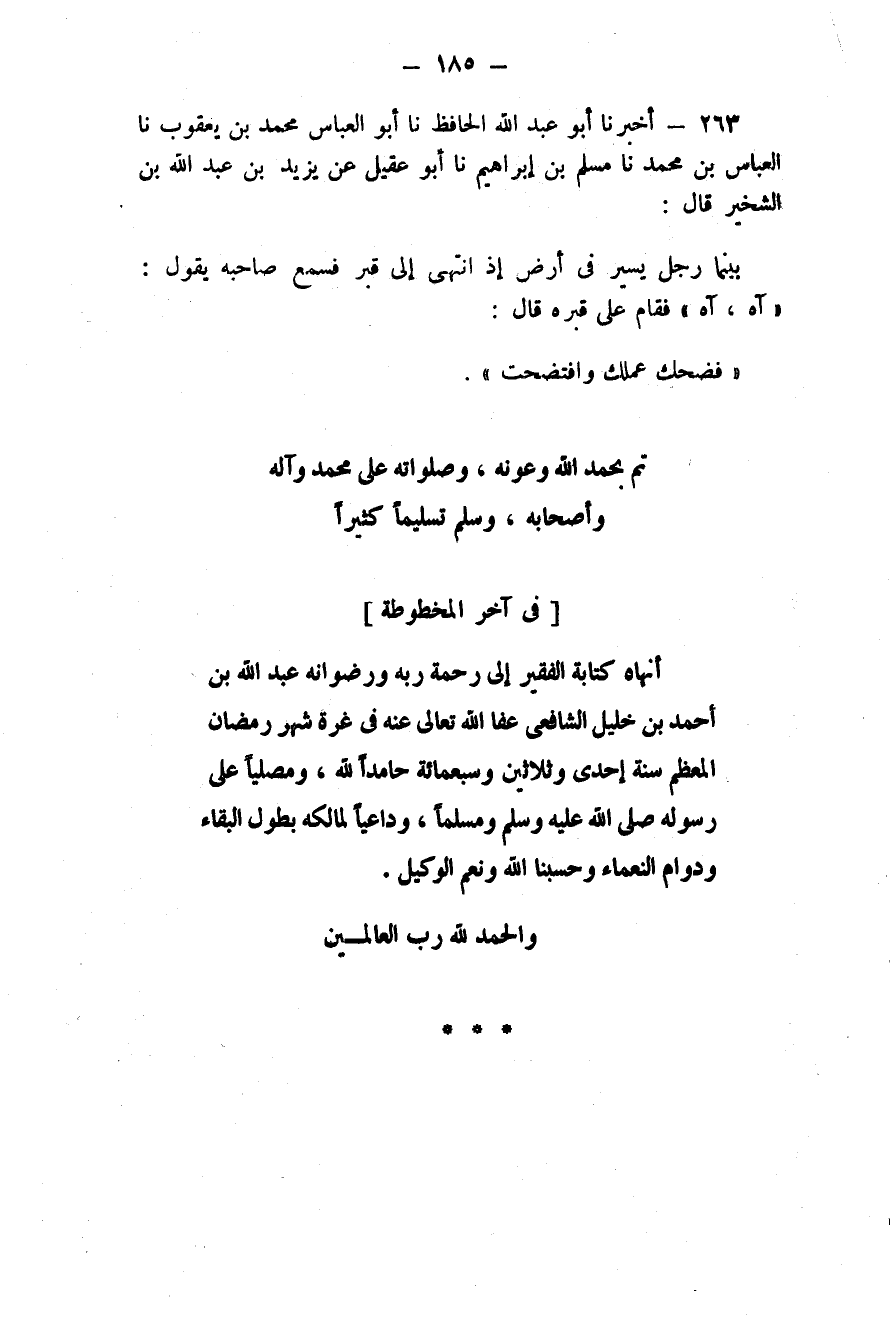 – ١٨٥ –
٢٦٣ – أخبرنا أبو عبد الله الحافظ نا أبو العباس محمد بن يعقوب نا
العباس بن محمد نا مسلم بن إبراهيم نا أبو عقيل عن يزيد بن عبد الله بن
الشخير قال :
بينما رجل يسير فى أرض إذ انتهى إلى قبر فسمع صاحبه يقول :
« آه ، آه » فقام على قبره قال :
« فضحك عملك وافتضحت » .
تم بحمد الله وعونه ، وصلواته على محمد وآله
وأصحابه ، وسلم تسليماً كثيراً
[ فى آخر المخطوطة ]
أنهاه كتابة الفقير إلى رحمة ربه ورضوانه عبد الله بن
أحمد بن خليل الشافعى عفا الله تعالى عنه فى غرة شهر رمضان
المعظم سنة إحدى وثلاثين وسبعمائة حامداً لله ، ومصلياً على
رسوله صلى الله عليه وسلم ومسلماً ، وداعياً لمالكه بطول البقاء
ودوام النعماء وحسبنا الله ونعم الوكيل .
والحمد لله رب العالمــين
* * *